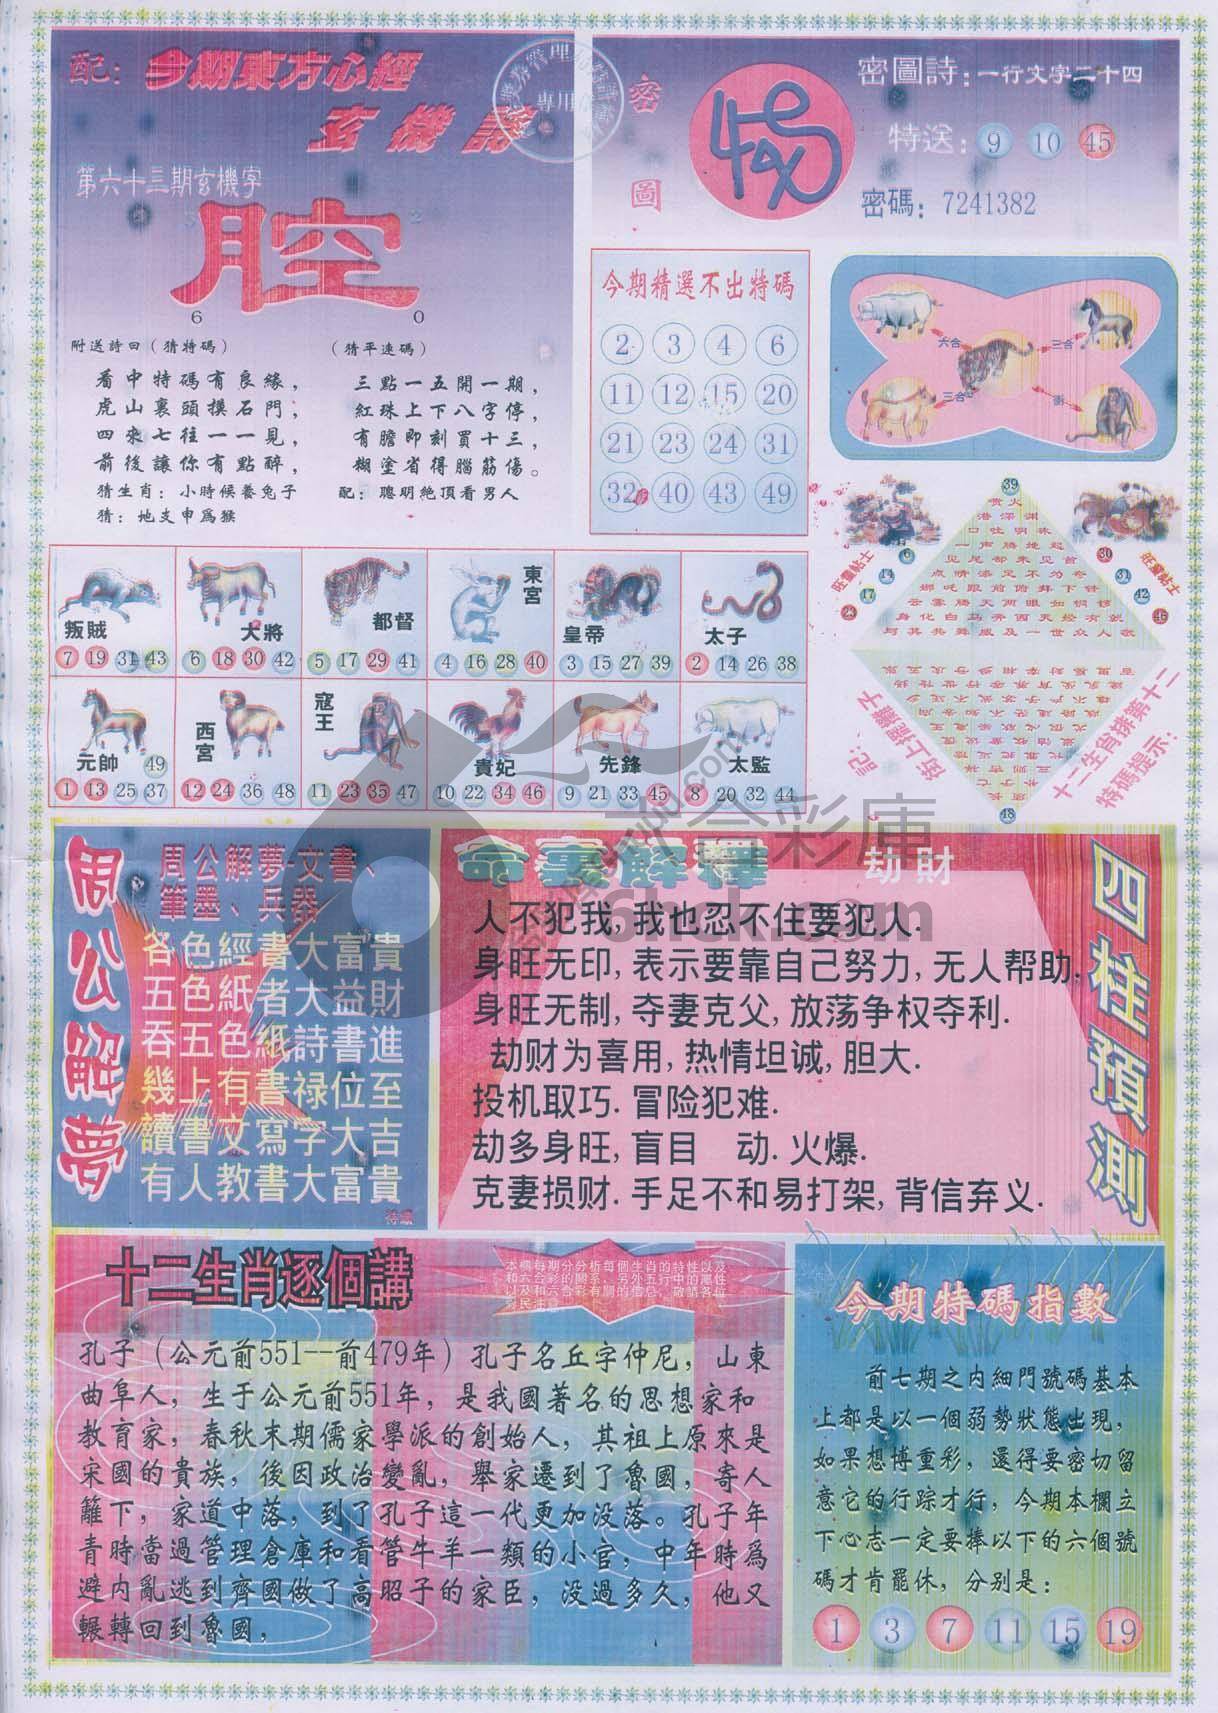 配：今期東方心經
玄機詩
專用
第六十三期玄機字
腔
6 0
附送詩曰（猜特碼）
看中特碼有良緣，
虎山裏頭摸石門，
四來七往一一見，
前後讓你有點醉，
猜生肖：小時候養兔子
猜：地支申爲猴
（猜平連碼）
三點一五開一期，
紅珠上下八字停，
有膽即刻買十三，
糊塗省得腦筋傷。
配：聰明絕頂看男人
密圖
密圖詩：一行文字二十四
特送：9 10 45
密碼：7241382
今期精選不出特碼
2 3 4 6
11 12 15 20
21 23 24 31
32 40 43 49
六合 三合
三合 衝
39
旺彩帖士
6 14 17 23
30 31 42 46
48
街上擺攤子
十二生肖排第十二
特碼提示：
叛賊
7 19 31 43
大將
6 18 30 42
都督
5 17 29 41
東宮
4 16 28 40
皇帝
3 15 27 39
太子
2 14 26 38
元帥 49
1 13 25 37
西宮
12 24 36 48
寇王
11 23 35 47
貴妃
10 22 34 46
先鋒
9 21 33 45
太監
8 20 32 44
六合彩庫
周公解夢
周公解夢-文書、
筆墨、兵器
各色經書大富貴
五色紙者大益財
吞五色紙詩書進
幾上有書禄位至
讀書文寫字大吉
有人教書大富貴
待續
命裏解釋 劫財
四柱預測
人不犯我,我也忍不住要犯人.
身旺无印,表示要靠自己努力,无人帮助.
身旺无制,夺妻克父,放荡争权夺利.
劫财为喜用,热情坦诚,胆大.
投机取巧.冒险犯难.
劫多身旺,盲目 动.火爆.
克妻损财.手足不和易打架,背信弃义.
十二生肖逐個講
本欄每期分分析每個生肖的特性以及
和六合彩的關系、另外五行中的屬性
以及和六合彩有關的信息，敬請各位
彩民注意
孔子（公元前551--前479年）孔子名丘字仲尼，山東
曲阜人，生于公元前551年，是我國著名的思想家和
教育家，春秋末期儒家學派的創始人，其祖上原來是
宋國的貴族，後因政治變亂，舉家遷到了魯國，寄人
籬下，家道中落，到了孔子這一代更加没落。孔子年
青時當過管理倉庫和看管牛羊一類的小官，中年時爲
避内亂逃到齊國做了高昭子的家臣，没過多久，他又
輾轉回到魯國，
今期特碼指數
前七期之内細門號碼基本
上都是以一個弱勢狀態出現，
如果想博重彩，還得要密切留
意它的行踪才行，今期本欄立
下心志一定要捧以下的六個號
碼才肯罷休，分别是：
1 3 7 11 15 19